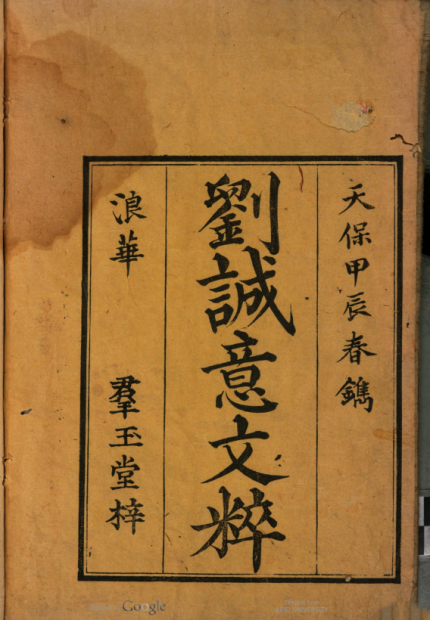 天保甲辰春鐫
劉誠意文粹
浪華 羣玉堂梓
Google